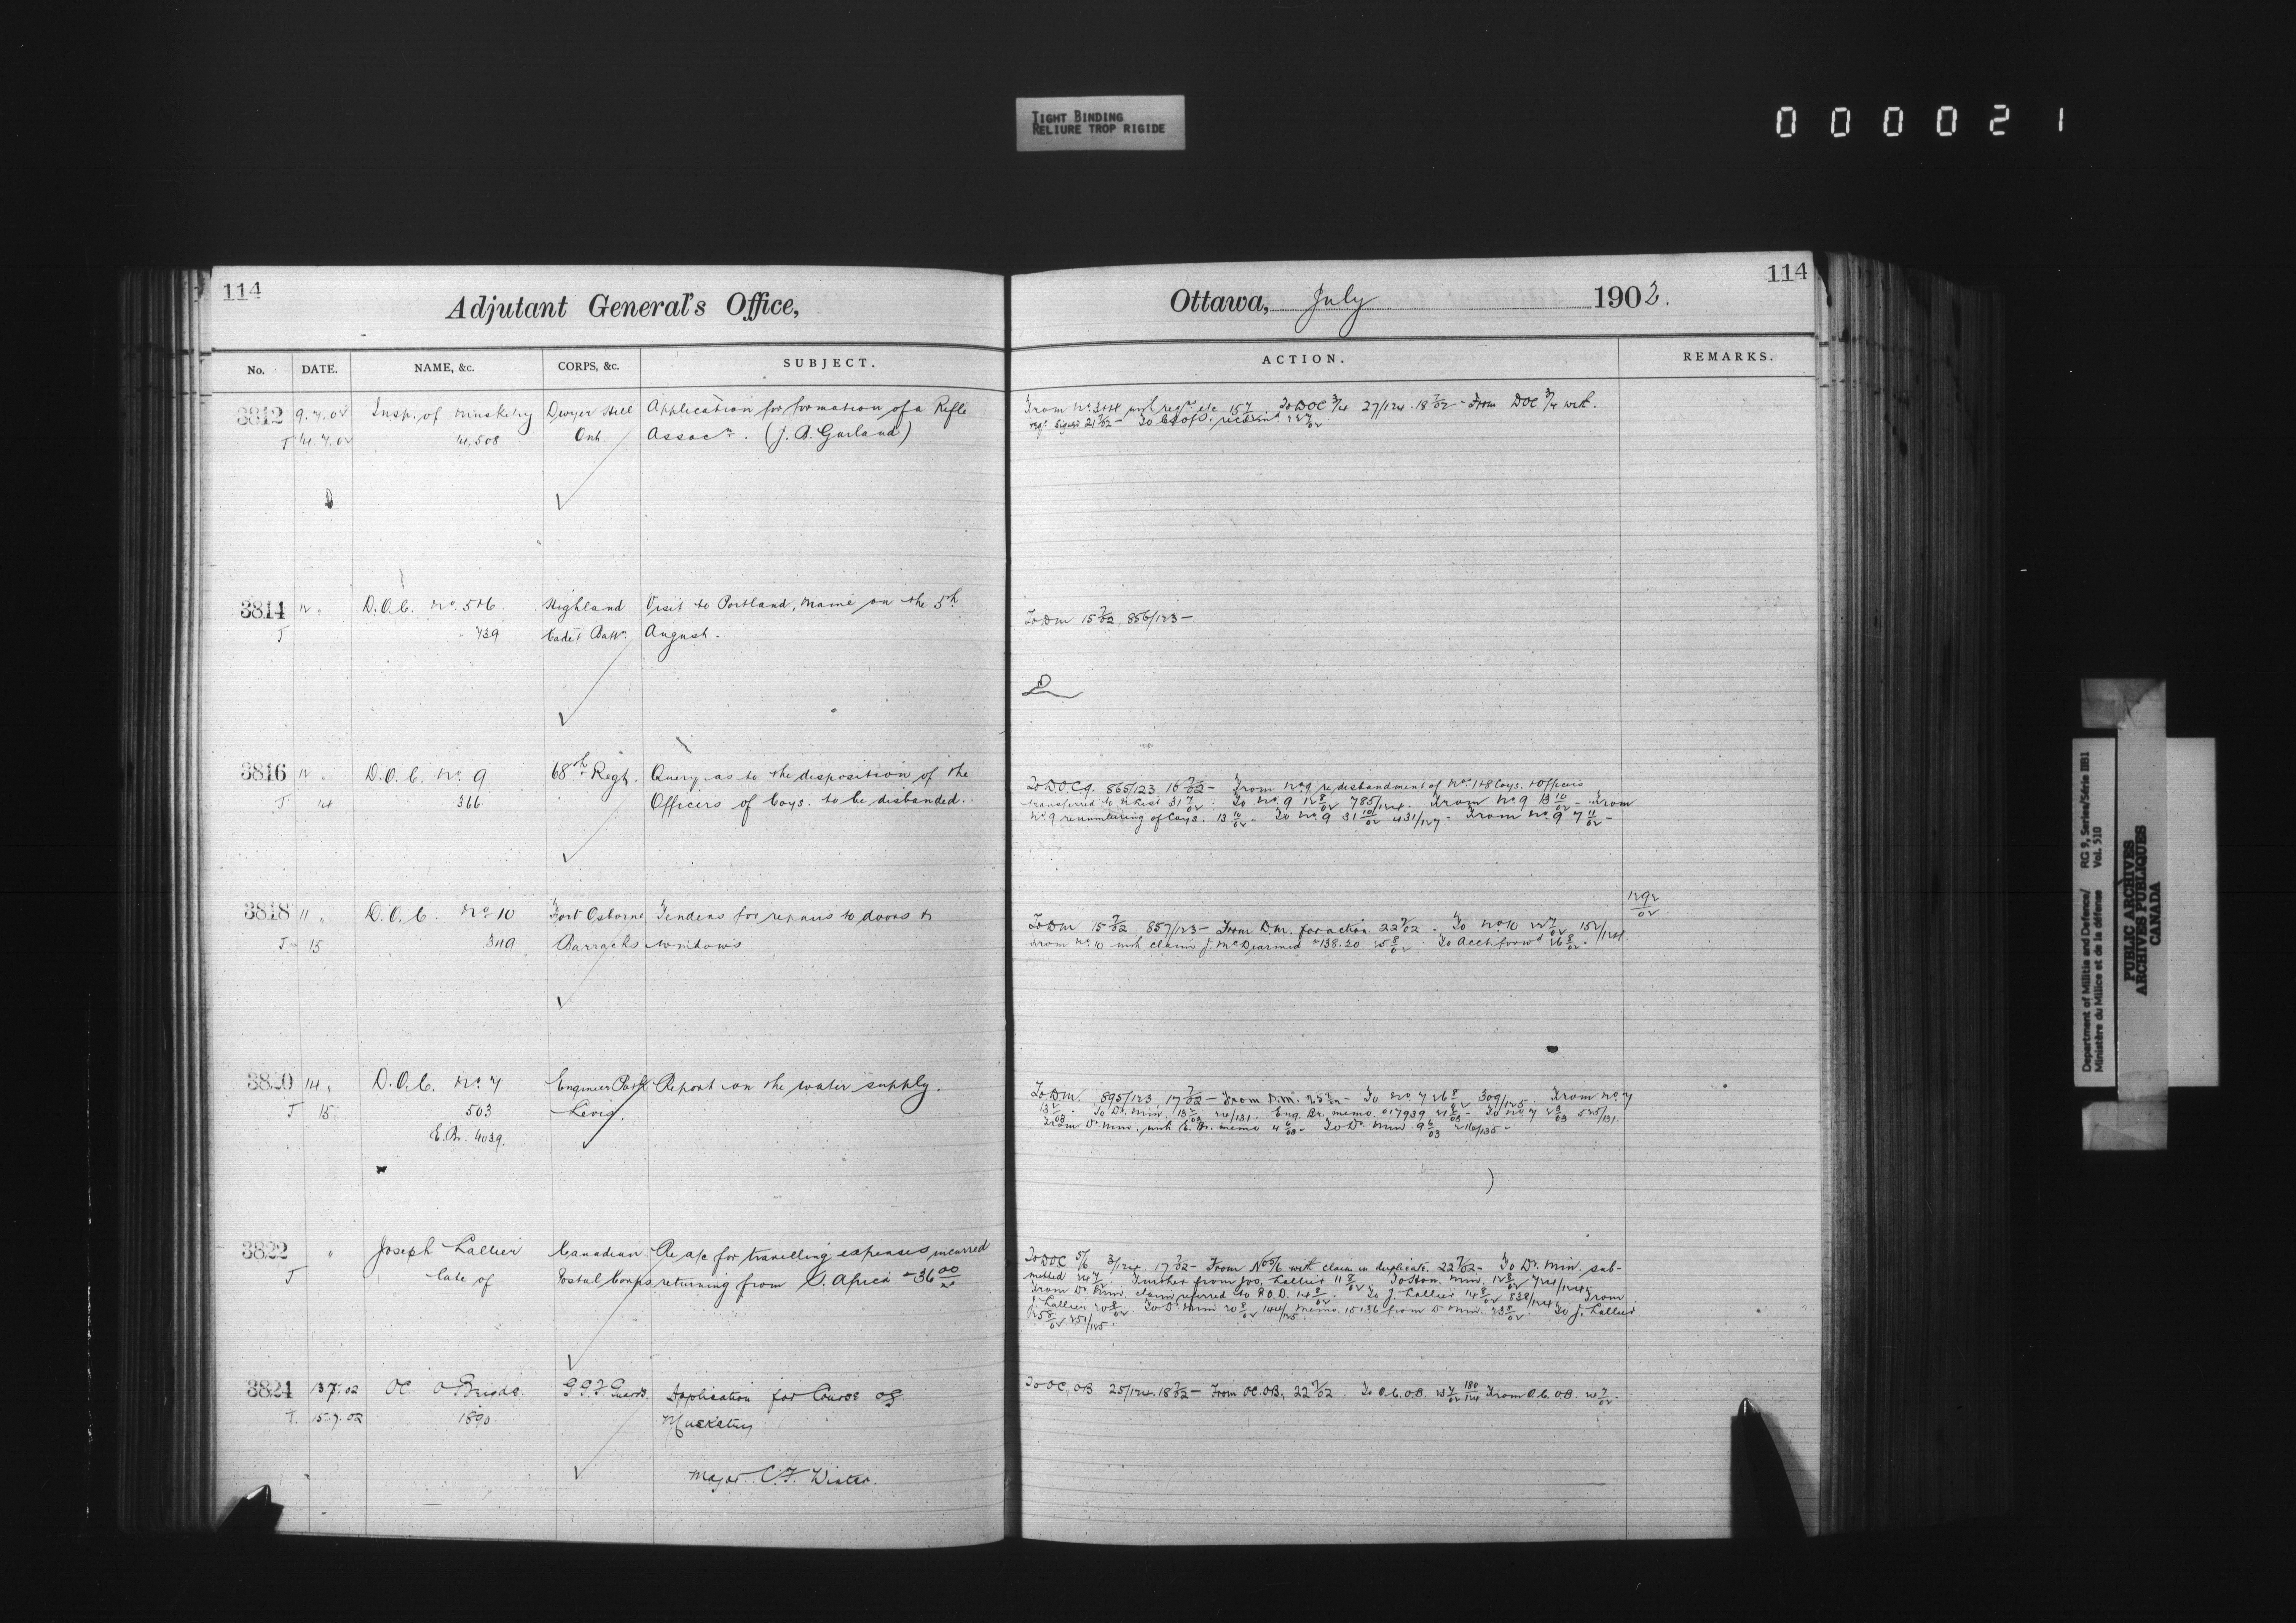 TIGHT BINDING
RELIURE TROP RIGIDE
000021
114
Adjutant General's Office,
No. DATE. NAME, &c. CORPS, &c. SUBJECT.
3812 9.7.02 Insp. of Musketry Dwyer Hill Application for formation of a Rifle
T 14.7.02 14,508 Ont. Assocn. (J. B. Garland)
3814 12 " D.O.C. No. 5&6 Highland Visit to Portland, Maine on the 5th
T 739 Cadet Battn. August.
3816 12 " D.O.C. No. 9 68th Regt. Query as to the disposition of the
T 14 366 Officers of Coys. to be disbanded.
3818 11 " D.O.C. No 10 Fort Osborne Tenders for repairs to doors &
T 15 349 Barracks windows
3820 14 " D.O.C. No. 7 Engineer Park Report on the water supply.
T 15 503 Levis.
E.Br. 4039.
3822 " Joseph Lallier Canadian Re a/c for travelling expenses incurred
T late of Postal Corps returning from S. Africa $36 00
3824 13.7.02 OC O Brigde. G.G.F. Guards. Application for Course of
T. 15.7.02 1890 Musketry
Major C.F. Winter.
114
Ottawa, July 1902.
ACTION. REMARKS.
From No. 3&4 with reqn. etc 15 7 To DOC 3/4 27/124. 18 7/02 - From DOC 3/4 with
reqn. signed 21 7/02 - To
To DM 15 7/02 856/123 -
To D.O.C. 9. 865/123 16 7/02 - From No. 9 re disbandment of Nos. 1&8 Coys. & Officers
transferred to R. List 31 7/02. To No. 9 12 8/02 785/124. From No. 9 13 10/02 - From
No. 9 renumbering of Coys. 13 10/02 - To No. 9 31 10/02 431/127 - From No. 9 7 11/02 -
1292/02
To DM 15 7/02 857/123 - From D.M. for action 22 7/02. To No 10 22 7/02 152/124
From No. 10 with claim J. McDearmed $138.20 25 8/02. To Acct. forwd. 26 8/02.
To DM. 895/123 17 7/02 - From D.M. - To No 7 26 8/02 309/125. From No. 7
To Dr. Min. 24/131. Eng. Br. memo. 017939 - To No 7 525/131.
From Dr. Min. with E. Br. memo - To Dr. Min 9 6/03
To DOC 5/6 3/124. 17 7/02 - From No 5/6 with claim in duplicate. 22 7/02 - To Dr. Min. sub-
mitted 24 7/02. Further from Jos. Lallier 11 8/02. To Hon. Min. 12 8/02 724/124.
From Dr. Min. claim referred to P.O.D. 14 8/02. To J. Lallier 14 8/02 838/124. From
J. Lallier 20 8/02 To Dr. Min 20 8/02 144/125. Memo. 15136 from Dr. Min. 23 8/02. To J. Lallier
25 8/02 251/125.
To OC, OB 25/124. 18 7/02 - From OC. OB, 22 7/02. To O.C. O.B. 23 7/02 180/124 From O.C. OB.
Department of Militia and Defence/ RG 9, Series/Série IIB1
Ministère du Milice et de la défense Vol. 510
PUBLIC ARCHIVES
ARCHIVES PUBLIQUES
CANADA